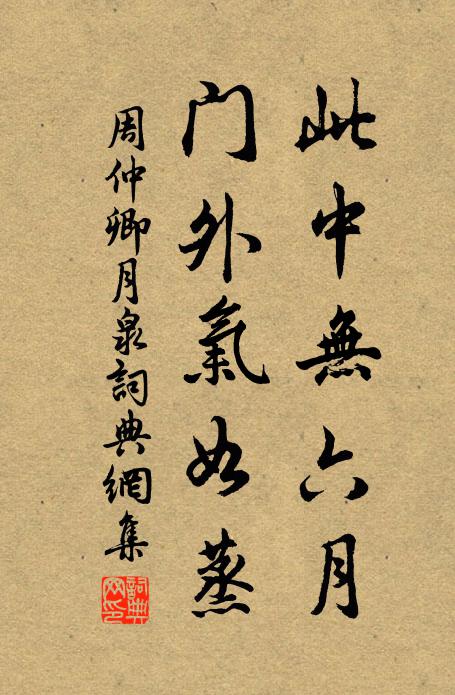 此中無六月
门外氣如蒸
周仲卿月泉詞典網集
詞典網印